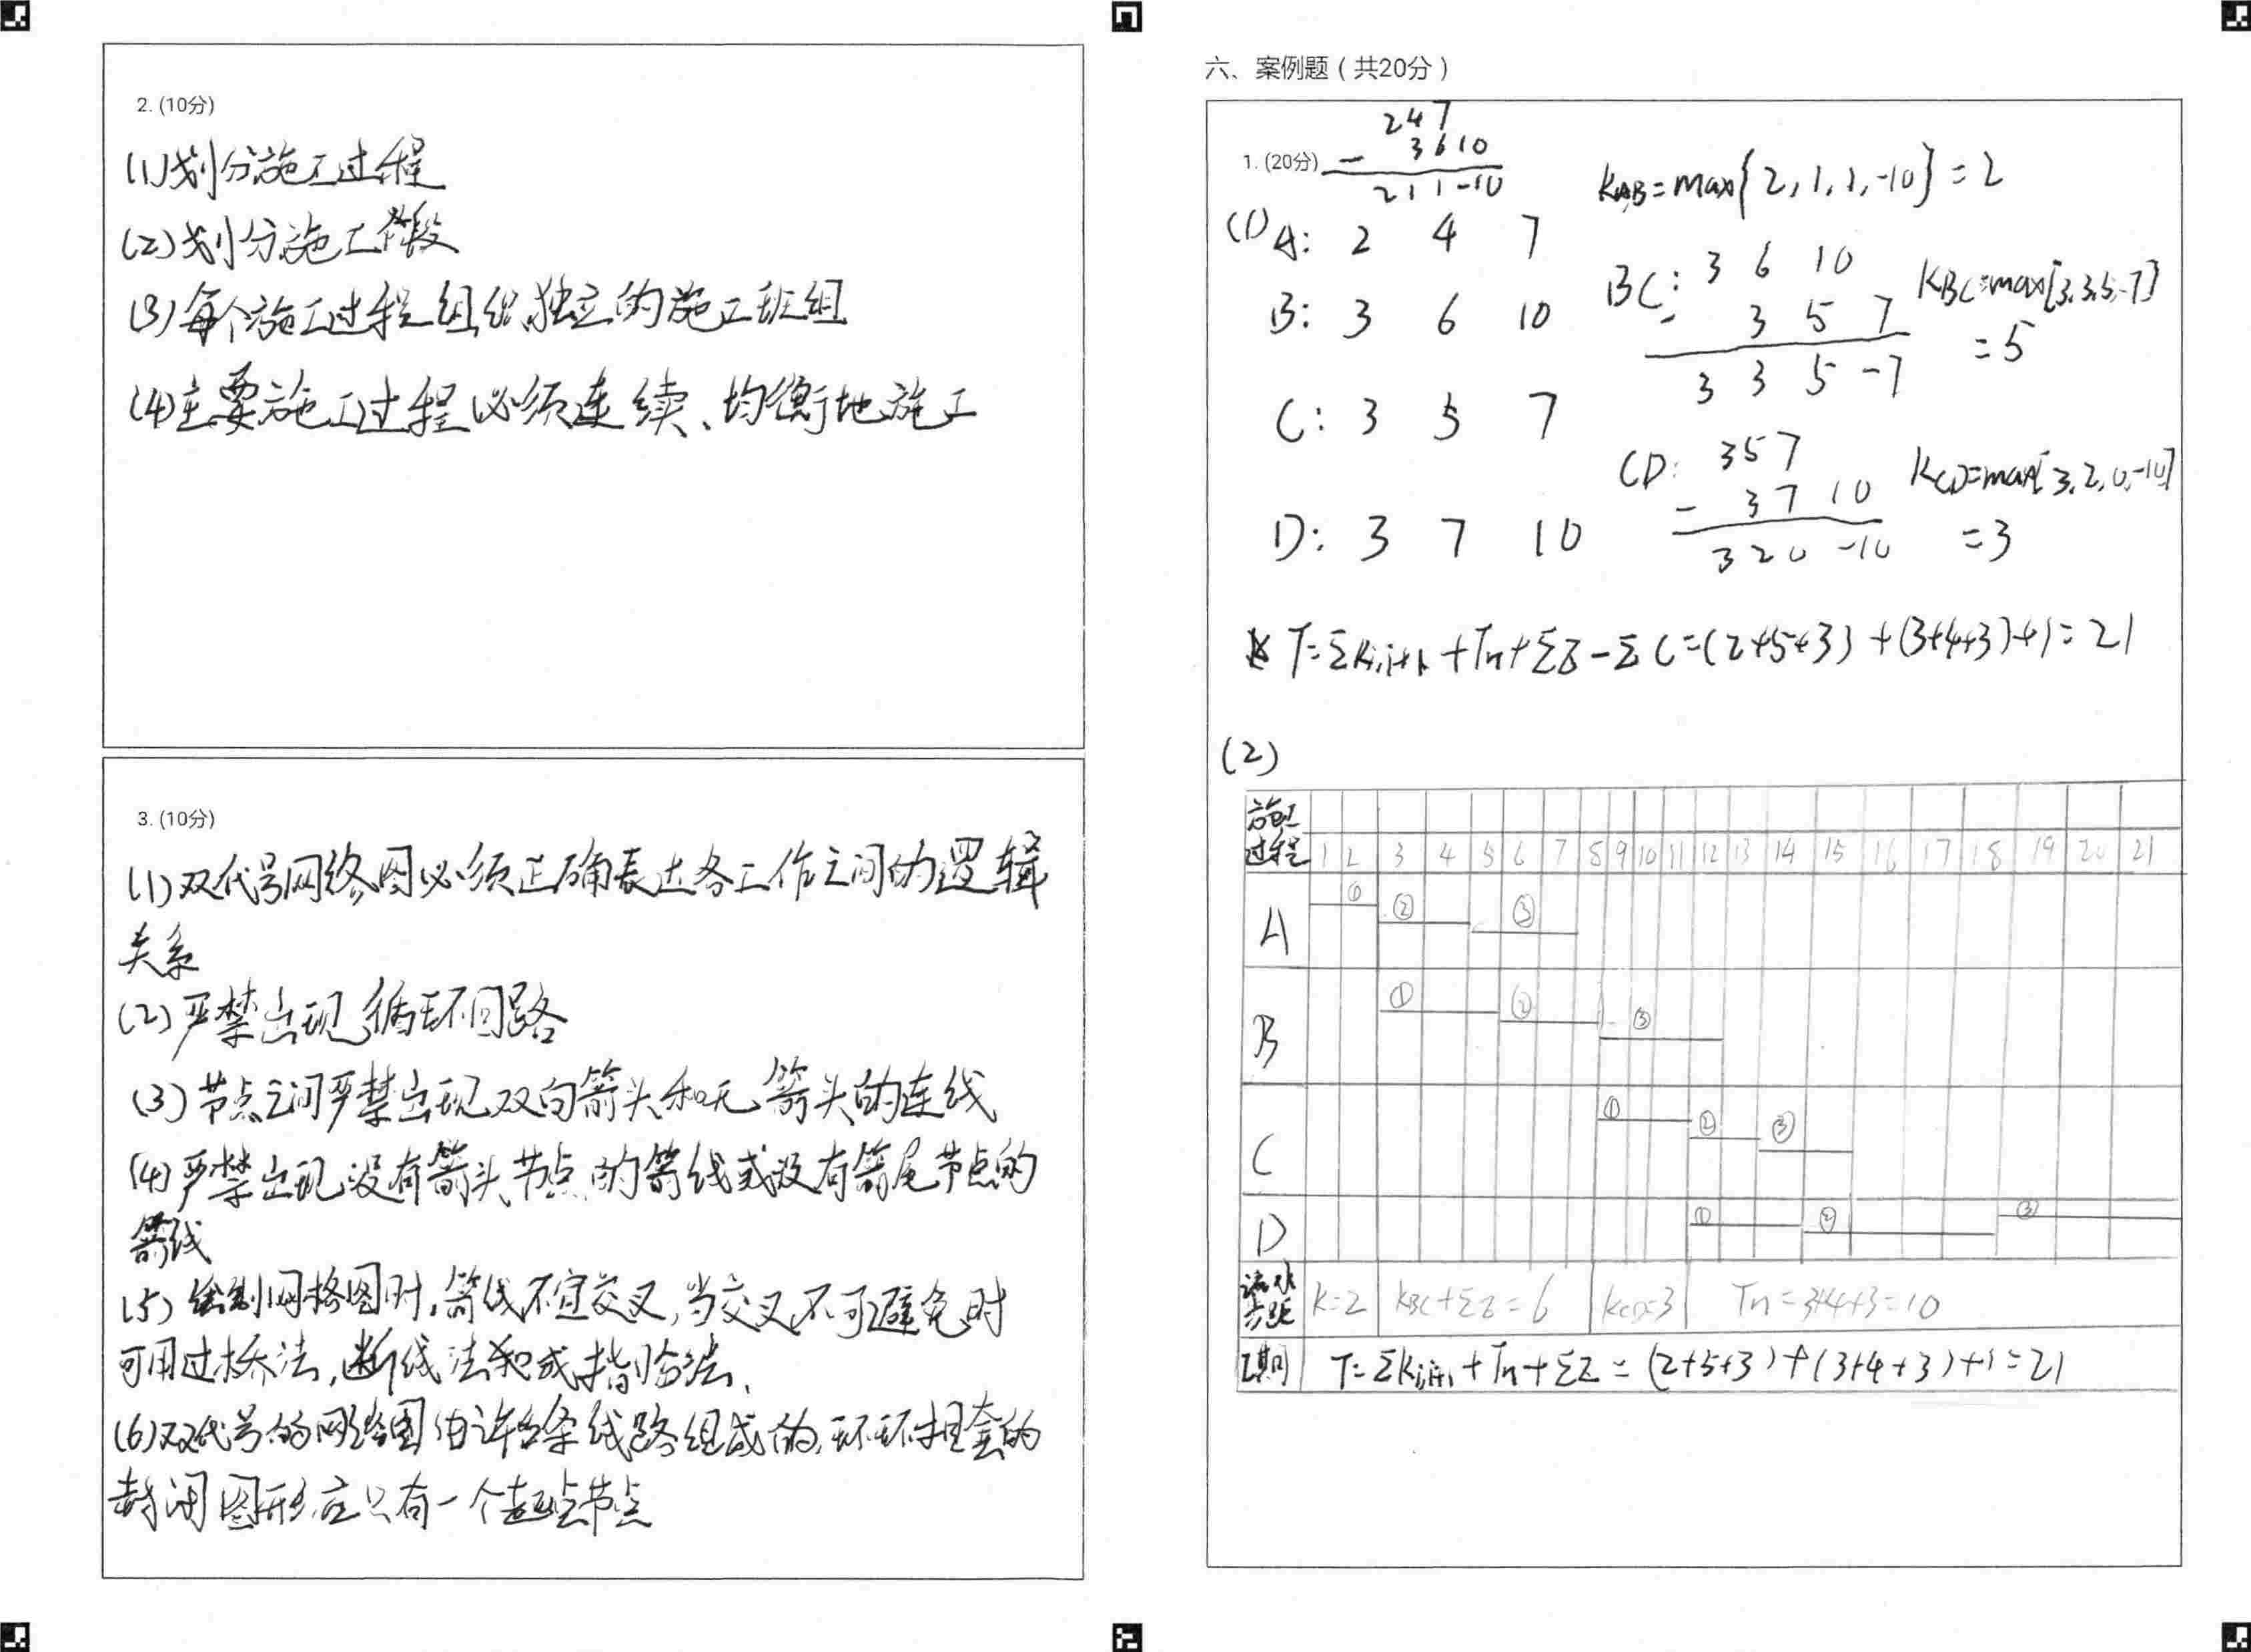 2. (10分)
(1)划分施工过程
(2)划分施工段
(3)每个施工过程组织独立的施工班组
(4)主要施工过程必须连续、均衡地施工
3. (10分)
(1)双代号网络图必须正确表达各工作之间的逻辑
关系
(2)严禁出现循环回路
(3)节点之间严禁出现双向箭头和无箭头的连线
(4)严禁出现没有箭头节点的箭线或没有箭尾节点的
箭线
(5)绘制网络图时,箭线不宜交叉,当交叉不可避免时
可用过桥法,断线法和或指向法、
(6)双代号的网络图由许多条线路组成的,环环相套的
封闭图形应只有一个起点节点
六、案例题（共20分）
1. (20分)
2 4 7
- 3 6 10
2 1 1 -10
KAB=max{2,1,1,-10}=2
(1) A: 2 4 7
B: 3 6 10
C: 3 5 7
D: 3 7 10
BC: 3 6 10
- 3 5 7
3 3 5 -7
KBC=max{3,3,5,-7}
=5
CD: 3 5 7
- 3 7 10
3 2 0 -10
KCD=max{3,2,0,-10}
=3
T=ΣKi,i+1+Tn+ΣZ-ΣC=(2+5+3)+(3+4+3)+1=21
(2)
施工
过程 1 2 3 4 5 6 7 8 9 10 11 12 13 14 15 16 17 18 19 20 21
A ① ② ③
B ① ② ③
C ① ② ③
D ① ② ③
流水
步距 K=2 KBC+ΣZ=6 KCD=3 Tn=3+4+3=10
工期 T=ΣKi,i+1+Tn+ΣZ=(2+5+3)+(3+4+3)+1=21